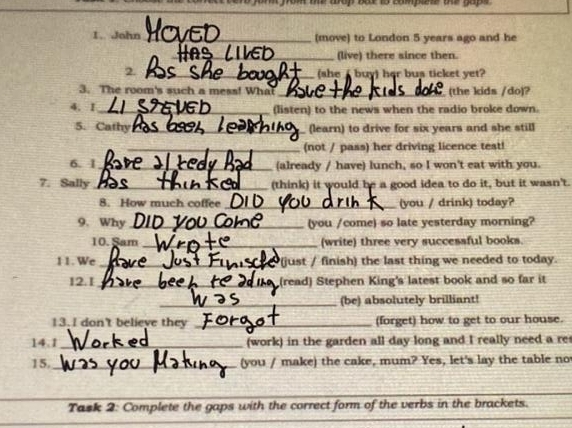 1. John MOVED (move) to London 5 years ago and he
HAS LIVED (live) there since then.
2. Has she bought (she / buy) her bus ticket yet?
3. The room's such a mess! What have the kids done (the kids /do)?
4. I LISTENED (listen) to the news when the radio broke down.
5. Cathy has been learning (learn) to drive for six years and she still
(not / pass) her driving licence test!
6. I have alredy had (already / have) lunch, so I won't eat with you.
7. Sally has thinked (think) it would be a good idea to do it, but it wasn't.
8. How much coffee DID you drink (you / drink) today?
9. Why DID YOU Come (you /come) so late yesterday morning?
10. Sam Wrote (write) three very successful books.
11. We have Just Finisched (just / finish) the last thing we needed to today.
12. I have been reading (read) Stephen King's latest book and so far it
was (be) absolutely brilliant!
13. I don't believe they Forgot (forget) how to get to our house.
14. I Worked (work) in the garden all day long and I really need a
15. Was you Making (you / make) the cake, mum? Yes, let's lay the table
Task 2: Complete the gaps with the correct form of the verbs in the brackets.